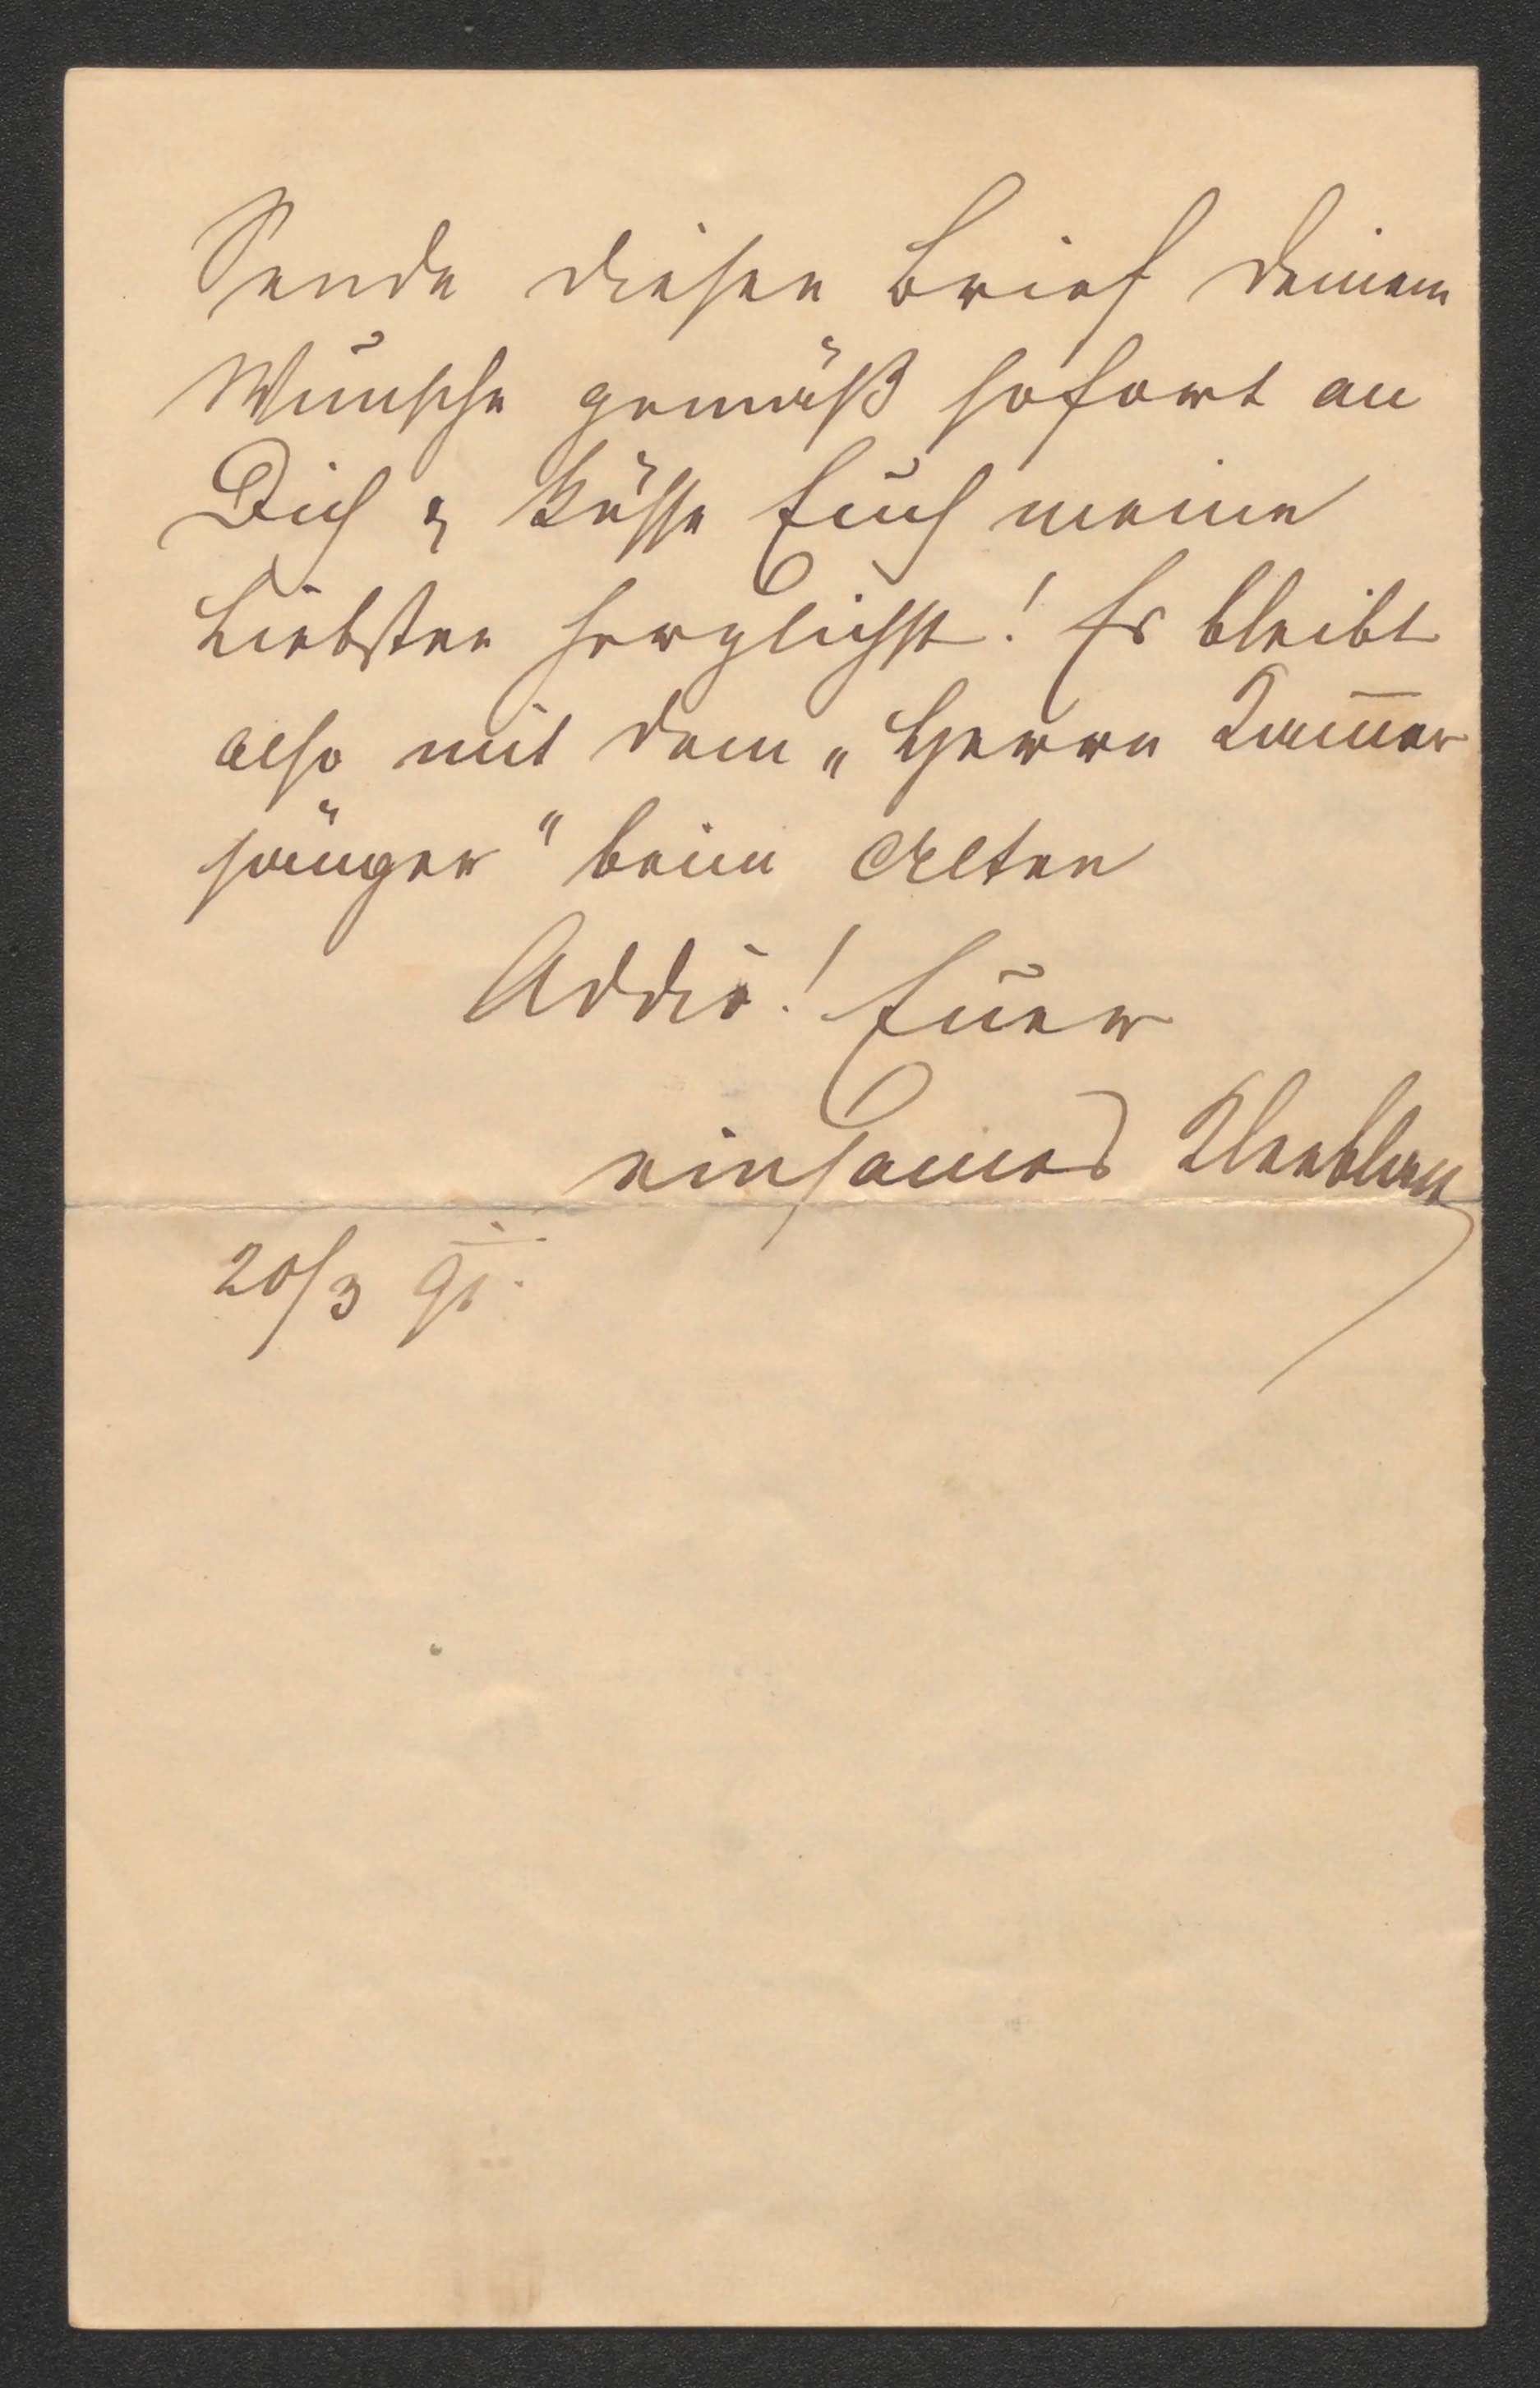 Sende diesen Brief Deinem
Wunsche gemäß sofort an
Dich & küsse Euch meine
Liebsten herzlichst! Es bleibt
also mit dem „Herrn Kam̅er
sänger" beim Alten
Addio! Euer
einsames Kleeblatt
20/3 91.